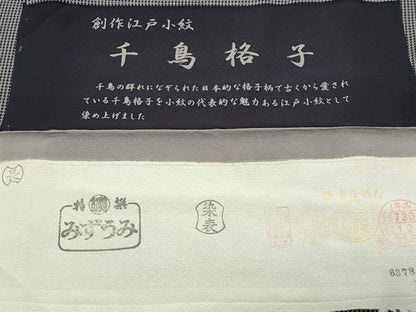 創作江戸小紋
千鳥格子
千鳥の群れになぞらえた日本的な格子柄で古くから愛され
ている千鳥格子を小紋の代表的な魅力ある江戸小紋として
染め上げました
特 撰
みずうみ
染表
730
6278